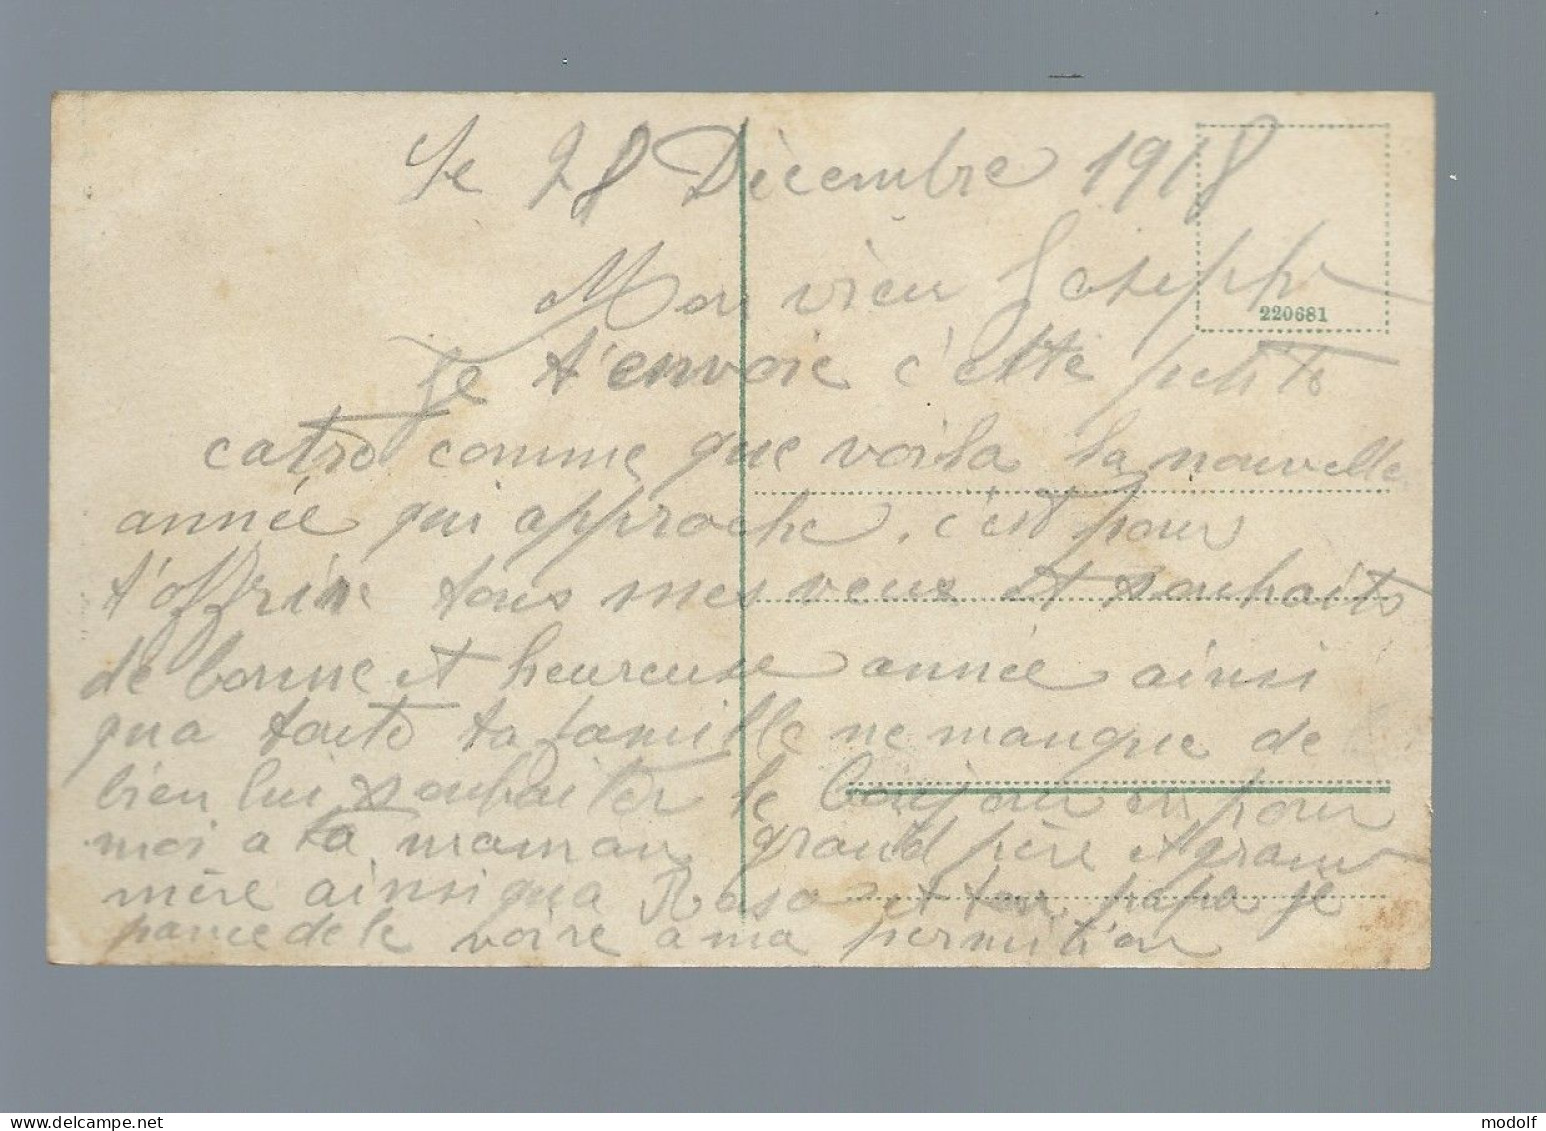 Le 28 Décembre 1918
Mon vieu Joseph
220681
Je t'envoie c'ette petite
catre comme que voila la nouvelle
année qui approche, c'est pour
t'offrire tous mes veux et souhaits
de bonne et heureuse année ainsi
qua toute ta famille ne manque de
bien lui souhaiter le bonjour pour
moi a ta maman grand père et grand
mère ainsi qua Rosa et ton papa je
pance de le voire a ma permition
www.delcampe.net
modolf